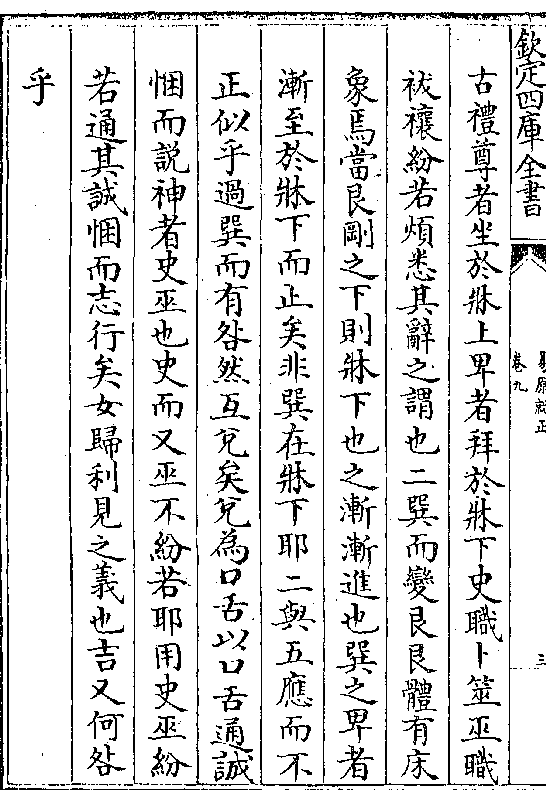 欽定四庫全書
易原就正
卷九
三
古禮尊者坐於牀上卑者拜於牀下史職卜筮巫職
祓禳紛若煩悉其辭之謂也二巽而變艮艮體有床
象焉當艮剛之下則牀下也之漸漸進也巽之卑者
漸至於牀下而止矣非巽在牀下耶二與五應而不
正似乎過巽而有咎然互兌矣兌為口舌以口舌通誠
悃而説神者史巫也史而又巫不紛若耶用史巫紛
若通其誠悃而志行矣女歸利見之義也吉又何咎
乎